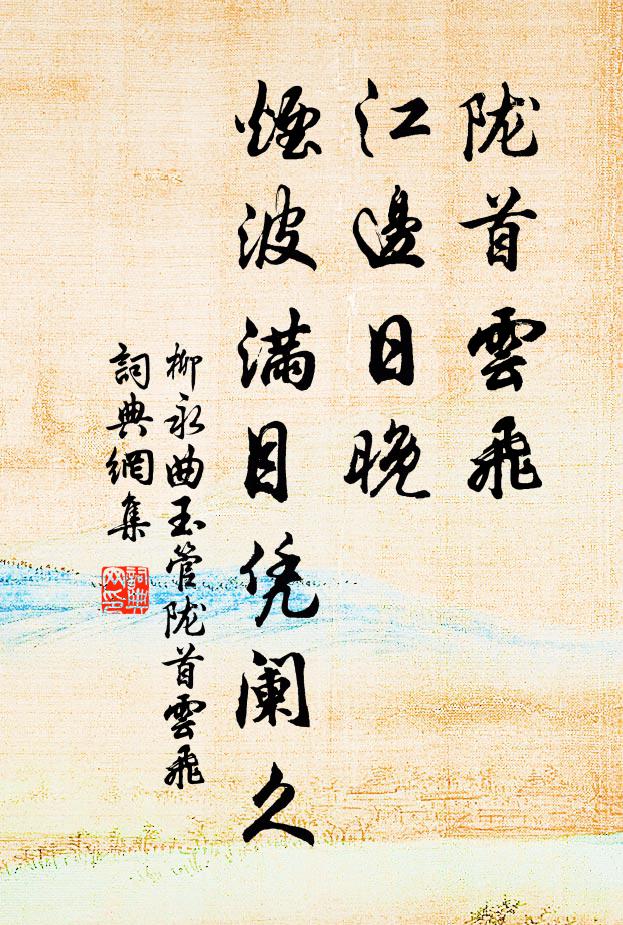 陇首雲飛
江邊日晚
煙波滿目凭阑久
柳永曲玉管陇首雲飛
詞典網集